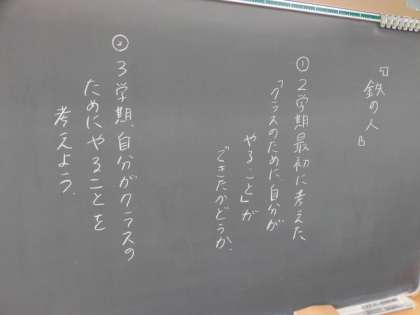 『鉄の人』
① 2学期最初に考えた
「クラスのために自分が
やること」が
できたかどうか。
② 3学期、自分がクラスの
ためにやることを
考えよう。